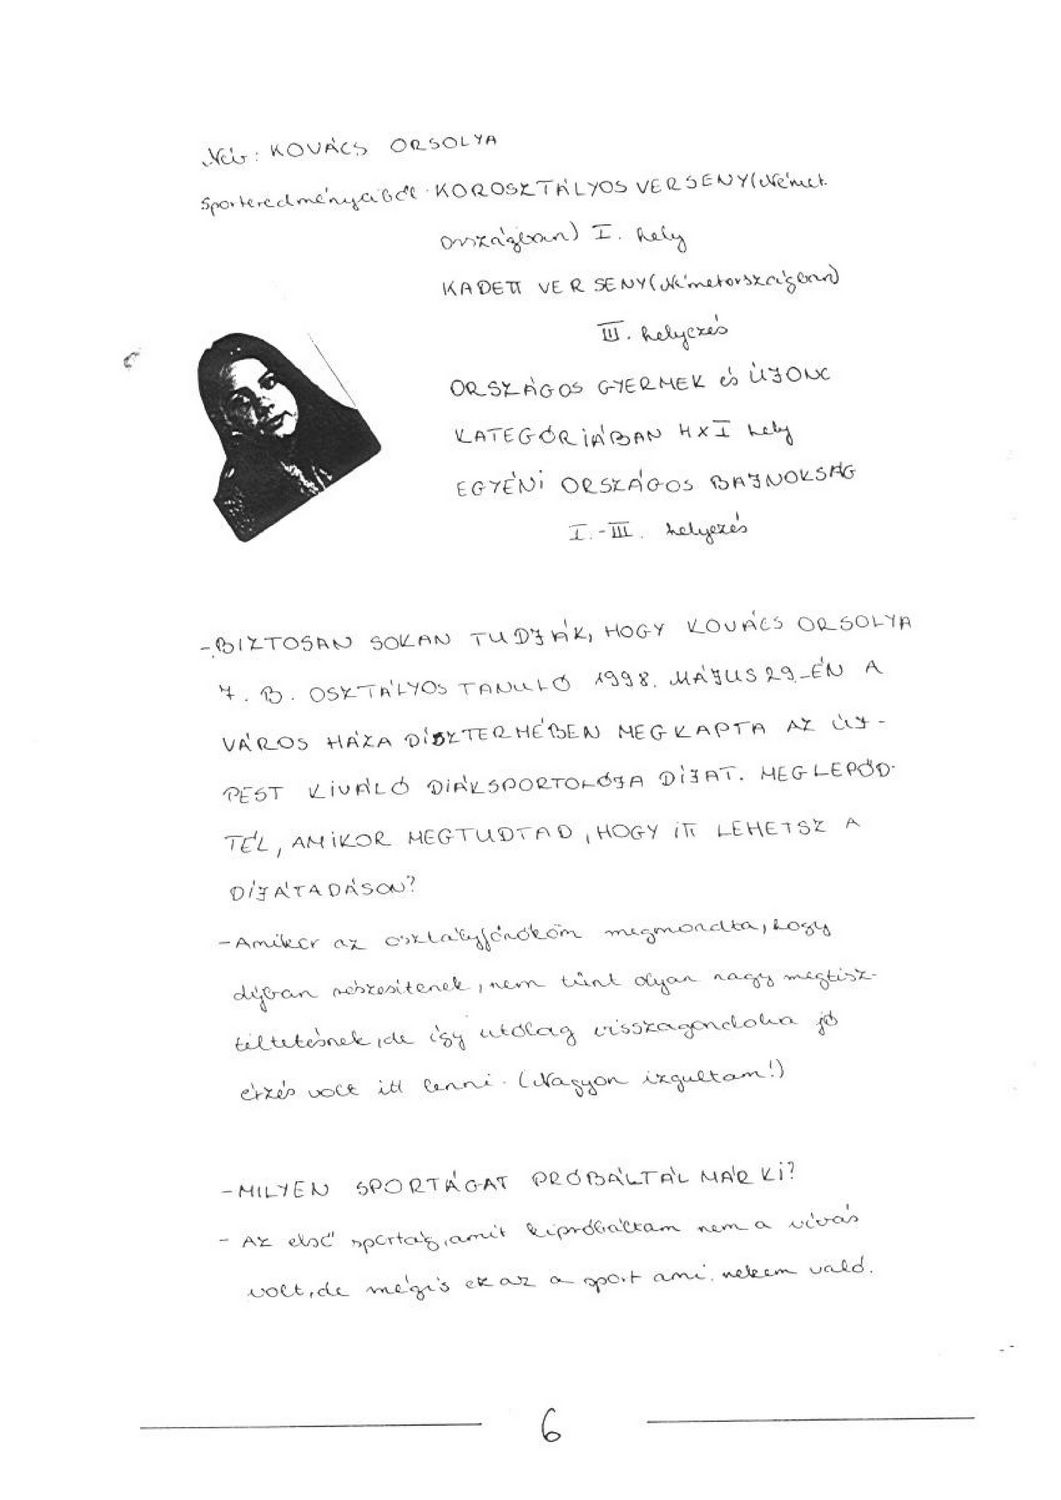 Név: KOVÁCS ORSOLYA
Sporteredményeiből: KOROSZTÁLYOS VERSENY (Német-
országban) I. hely
KADETT VERSENY (Németországban)
III. helyezés
ORSZÁGOS GYERMEK és ÚJONC
KATEGÓRIÁBAN 4XI hely
EGYÉNI ORSZÁGOS BAJNOKSÁG
I.-III. helyezés
-BIZTOSAN SOKAN TUDJÁK, HOGY KOVÁCS ORSOLYA
7. B. OSZTÁLYOS TANULÓ 1998. MÁJUS 29.-ÉN A
VÁROS HÁZA DÍSZTERMÉBEN MEGKAPTA AZ ÚJ-
PEST KIVÁLÓ DIÁKSPORTOLÓJA DÍJAT. MEGLEPŐD-
TÉL, AMIKOR MEGTUDTAD, HOGY ITT LEHETSZ A
DÍJÁTADÁSON?
-Amikor az osztályfőnököm megmondta, hogy
díjban részesítenek, nem tűnt olyan nagy megtisz-
teltetésnek, de így utólag visszagondolva jó
érzés volt itt lenni. (Nagyon izgultam!)
-MILYEN SPORTÁGAT PRÓBÁLTÁL MÁR KI?
- Az első sportág, amit kipróbáltam nem a vívás
volt, de mégis ez az a sport ami nekem való.
6